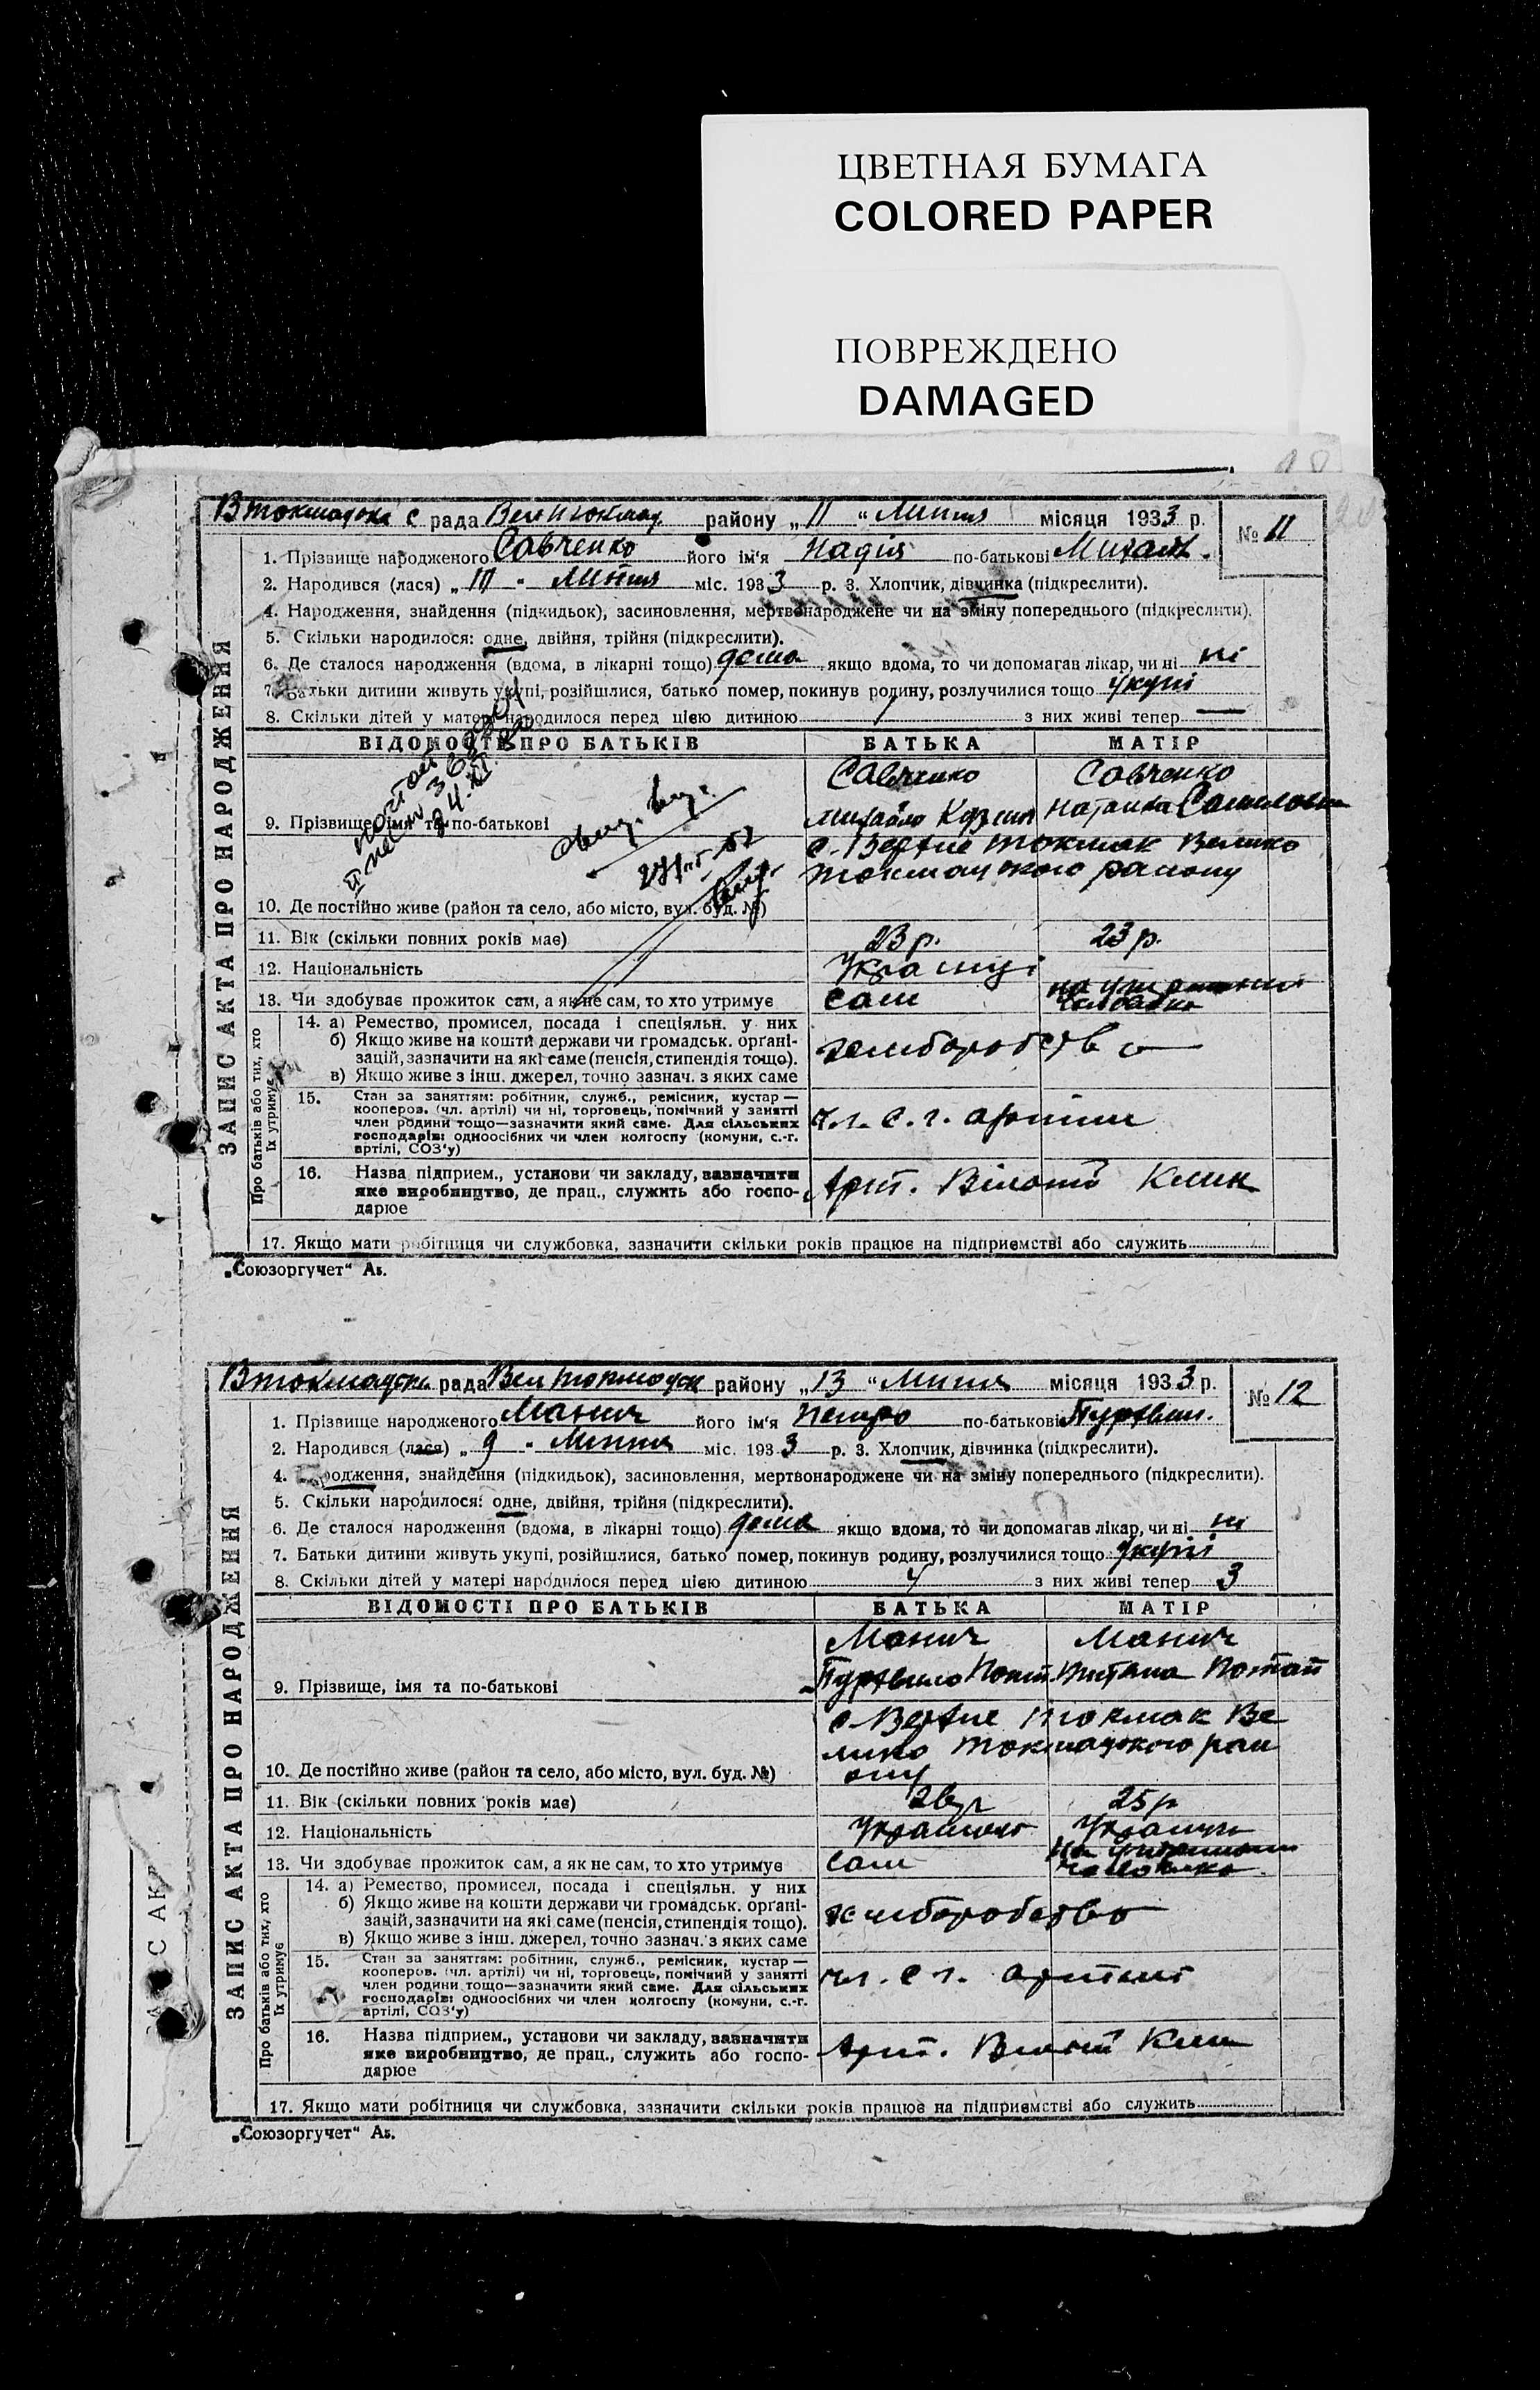 ЦВЕТНАЯ БУМАГА
COLORED PAPER
ПОВРЕЖДЕНО
DAMAGED
ЗАПИС АКТА ПРО НАРОДЖЕННЯ
Втокмацька с рада Велитокмац. району „11“ Липня місяця 1933 р. № 11
1. Прізвище народженого Савченко його ім'я Надія по-батькові Михайл.
2. Народився (лася) „ - Липня міс. 1933 р. 3. Хлопчик, дівчинка (підкреслити).
4. Народження, знайдення (підкидьок), засиновлення, мертвонароджене чи на зміну попереднього (підкреслити).
5. Скільки народилося: одне, двійня, трійня (підкреслити).
6. Де сталося народження (вдома, в лікарні тощо) дома, якщо вдома, то чи допомагав лікар, чи ні ні
7. Батьки дитини живуть укупі, розійшлися, батько помер, покинув родину, розлучилися тощо укупі
8. Скільки дітей у матері народилося перед цією дитиною з них живі тепер —
ВІДОМОСТІ ПРО БАТЬКІВ БАТЬКА МАТІР
Савченко Савченко
9. Прізвище, імя та по-батькові Михайло Кузьм Наталка
с. Верхнє Токмак Велико
Токмацького району
10. Де постійно живе (район та село, або місто, вул. буд. №)
11. Вік (скільки повних років має) 23 р. 23 р.
12. Національність Українці
13. Чи здобуває прожиток сам, а як не сам, то хто утримує сам на утриманні
чоловіка
Про батьків або тих, хто їх утримує
14. а) Ремество, промисел, посада і спеціяльн. у них
б) Якщо живе на кошти держави чи громадськ. організацій, зазначити на які саме (пенсія, стипендія тощо). хлиборобство
в) Якщо живе з інш. джерел, точно зазнач. з яких саме
15. Стан за заняттям: робітник, служб., ремісник, кустар—
кооперов. (чл. артілі) чи ні, торговець, помічний у занятті
член родини тощо—зазначити який саме. Для сільських чл. с. г. артіли
господарів: одноосібних чи член колгоспу (комуни, с.-г.
артілі, СОЗ'у)
16. Назва підприєм., установи чи закладу, зазначити
яке виробництво, де прац., служить або госпо- Арт. Клин
дарює
17. Якщо мати робітниця чи службовка, зазначити скільки років працює на підприємстві або служить
„Союзоргучет“ Аз.
ЗАПИС АКТА ПРО НАРОДЖЕННЯ
Втокмацьк рада Вел Токмацьк району „13“ Липня місяця 1933 р. № 12
1. Прізвище народженого Манич його ім'я Петро по-батькові
2. Народився (лася) „9 - Липня міс. 1933 р. 3. Хлопчик, дівчинка (підкреслити).
4. Народження, знайдення (підкидьок), засиновлення, мертвонароджене чи на зміну попереднього (підкреслити).
5. Скільки народилося: одне, двійня, трійня (підкреслити).
6. Де сталося народження (вдома, в лікарні тощо) дома якщо вдома, то чи допомагав лікар, чи ні ні
7. Батьки дитини живуть укупі, розійшлися, батько помер, покинув родину, розлучилися тощо укупі
8. Скільки дітей у матері народилося перед цією дитиною 4 з них живі тепер 3
ВІДОМОСТІ ПРО БАТЬКІВ БАТЬКА МАТІР
Манич Манич
9. Прізвище, імя та по-батькові
с. Верхнє Токмак Ве
лико Токмацького рай
ону
10. Де постійно живе (район та село, або місто, вул. буд. №)
11. Вік (скільки повних років має) 25 р
12. Національність
13. Чи здобуває прожиток сам, а як не сам, то хто утримує сам на утриманні
чоловіка
Про батьків або тих, хто їх утримує
14. а) Ремество, промисел, посада і спеціяльн. у них
б) Якщо живе на кошти держави чи громадськ. організацій, зазначити на які саме (пенсія, стипендія тощо). хлиборобство
в) Якщо живе з інш. джерел, точно зазнач. з яких саме
15. Стан за заняттям: робітник, служб., ремісник, кустар—
кооперов. (чл. артілі) чи ні, торговець, помічний у занятті
член родини тощо—зазначити який саме. Для сільських чл. с г. артіли
господарів: одноосібних чи член колгоспу (комуни, с.-г.
артілі, СОЗ'у)
16. Назва підприєм., установи чи закладу, зазначити
яке виробництво, де прац., служить або госпо- Арт. Клин
дарює
17. Якщо мати робітниця чи службовка, зазначити скільки років працює на підприємстві або служить
„Союзоргучет“ Аз.